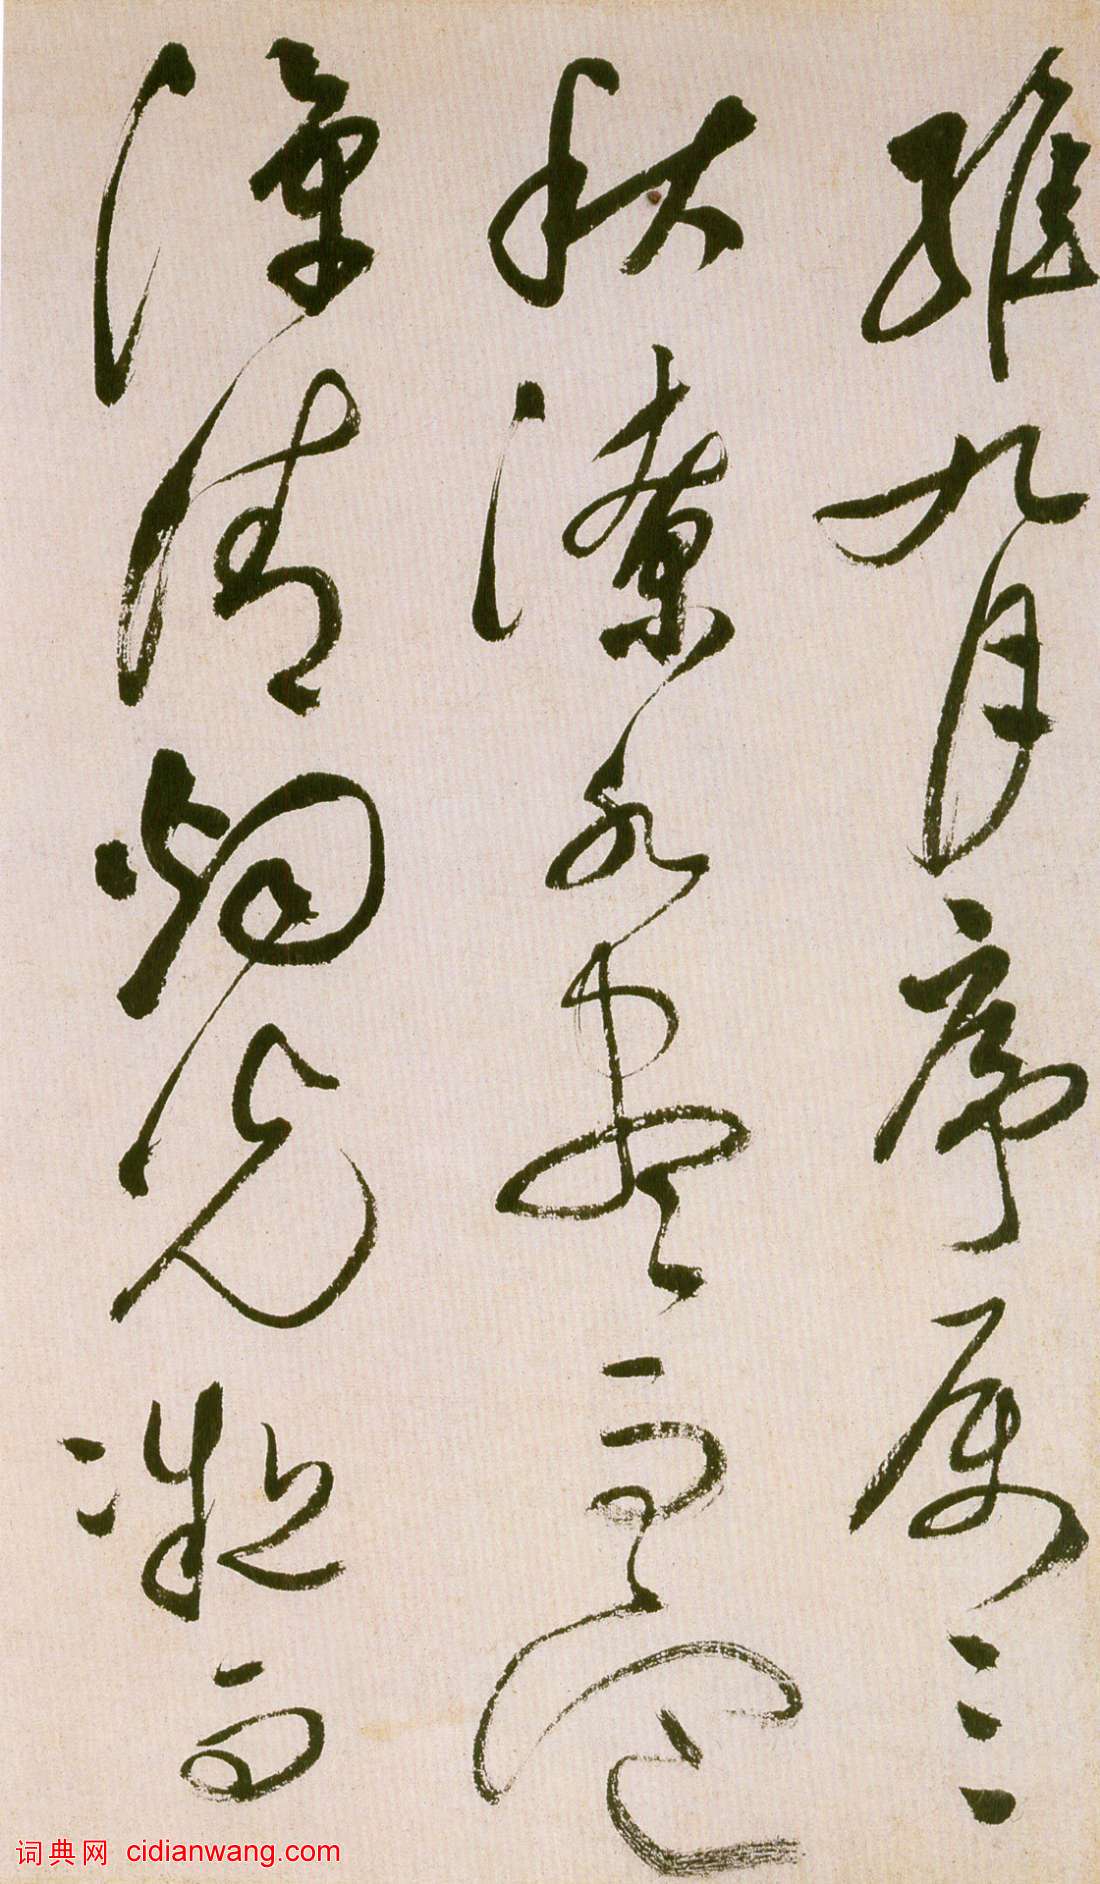 維九月序属三
秋潦水盡而寒
潭清烟光凝而
词典网 cidianwang.com